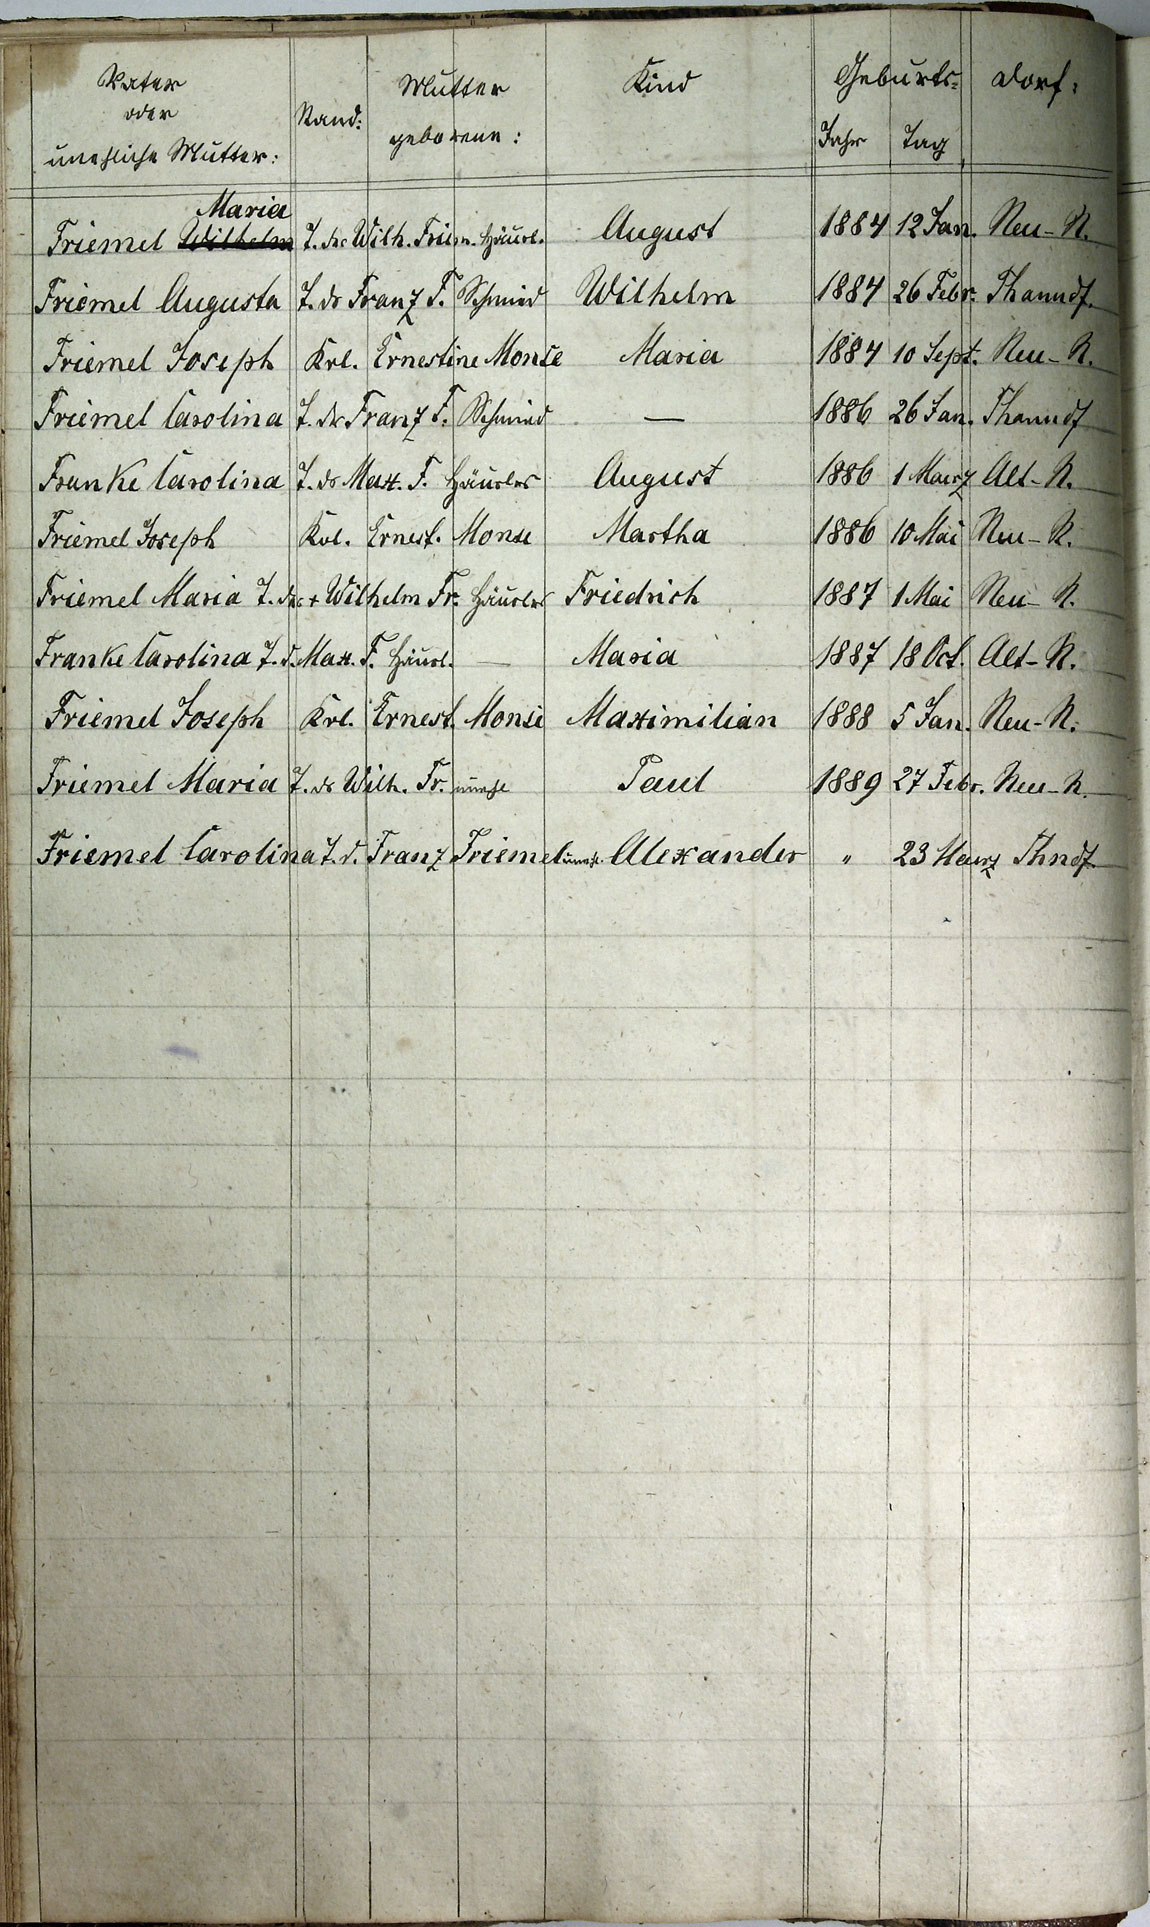 Vater oder unehliche Mutter: Stand: Mutter geborene: Kind Geburts= Jahr Tag Dorf:
Maria
Friemel Wilhelm T. des Wilh. Friem. Häusl. August 1884 12 Jan. Neu-R.
Friemel Augusta T. ds Franz F. Schmied Wilhelm 1884 26 Febr. Thanndf.
Friemel Joseph Krl. Ernestine Monse Maria 1884 10 Sept. Neu-R.
Friemel Carolina T. ds Franz F. Schmied — 1886 26 Jan. Thanndf
Franke Carolina T. ds Max. F. Häusler August 1886 1 Maerz Alt-R.
Friemel Joseph Krl. Ernest. Monse Martha 1886 10 Mai Neu-R.
Friemel Maria T. des + Wilhelm Fr. Häusler Friedrich 1887 1 Mai Neu-R.
Franke Carolina T. d. Max. F. Häusl. — Maria 1887 18 Oct. Alt-R.
Friemel Joseph Krl. Ernest. Monse Maximilian 1888 5 Jan. Neu-R.
Friemel Maria T. ds Wilh. Fr. unehe Paul 1889 27 Febr. Neu-R.
Friemel Carolina T. d. Franz Friemel uneh. Alexander " 23 Maerz Thndf.